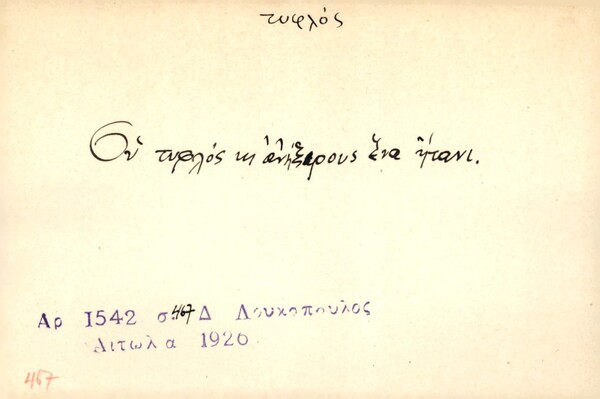 τυφλός
Οὑ τυφλός κη ἀνήξιρους ἕνα ἤτανι.
Αρ 1542 σ. 467 Δ Λουκοπουλος
Αιτωλ α 1920
467